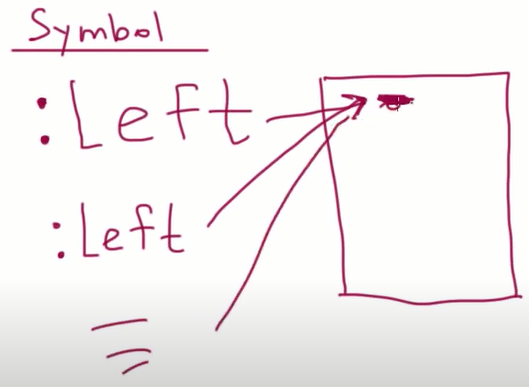 Symbol
:Left
:Left